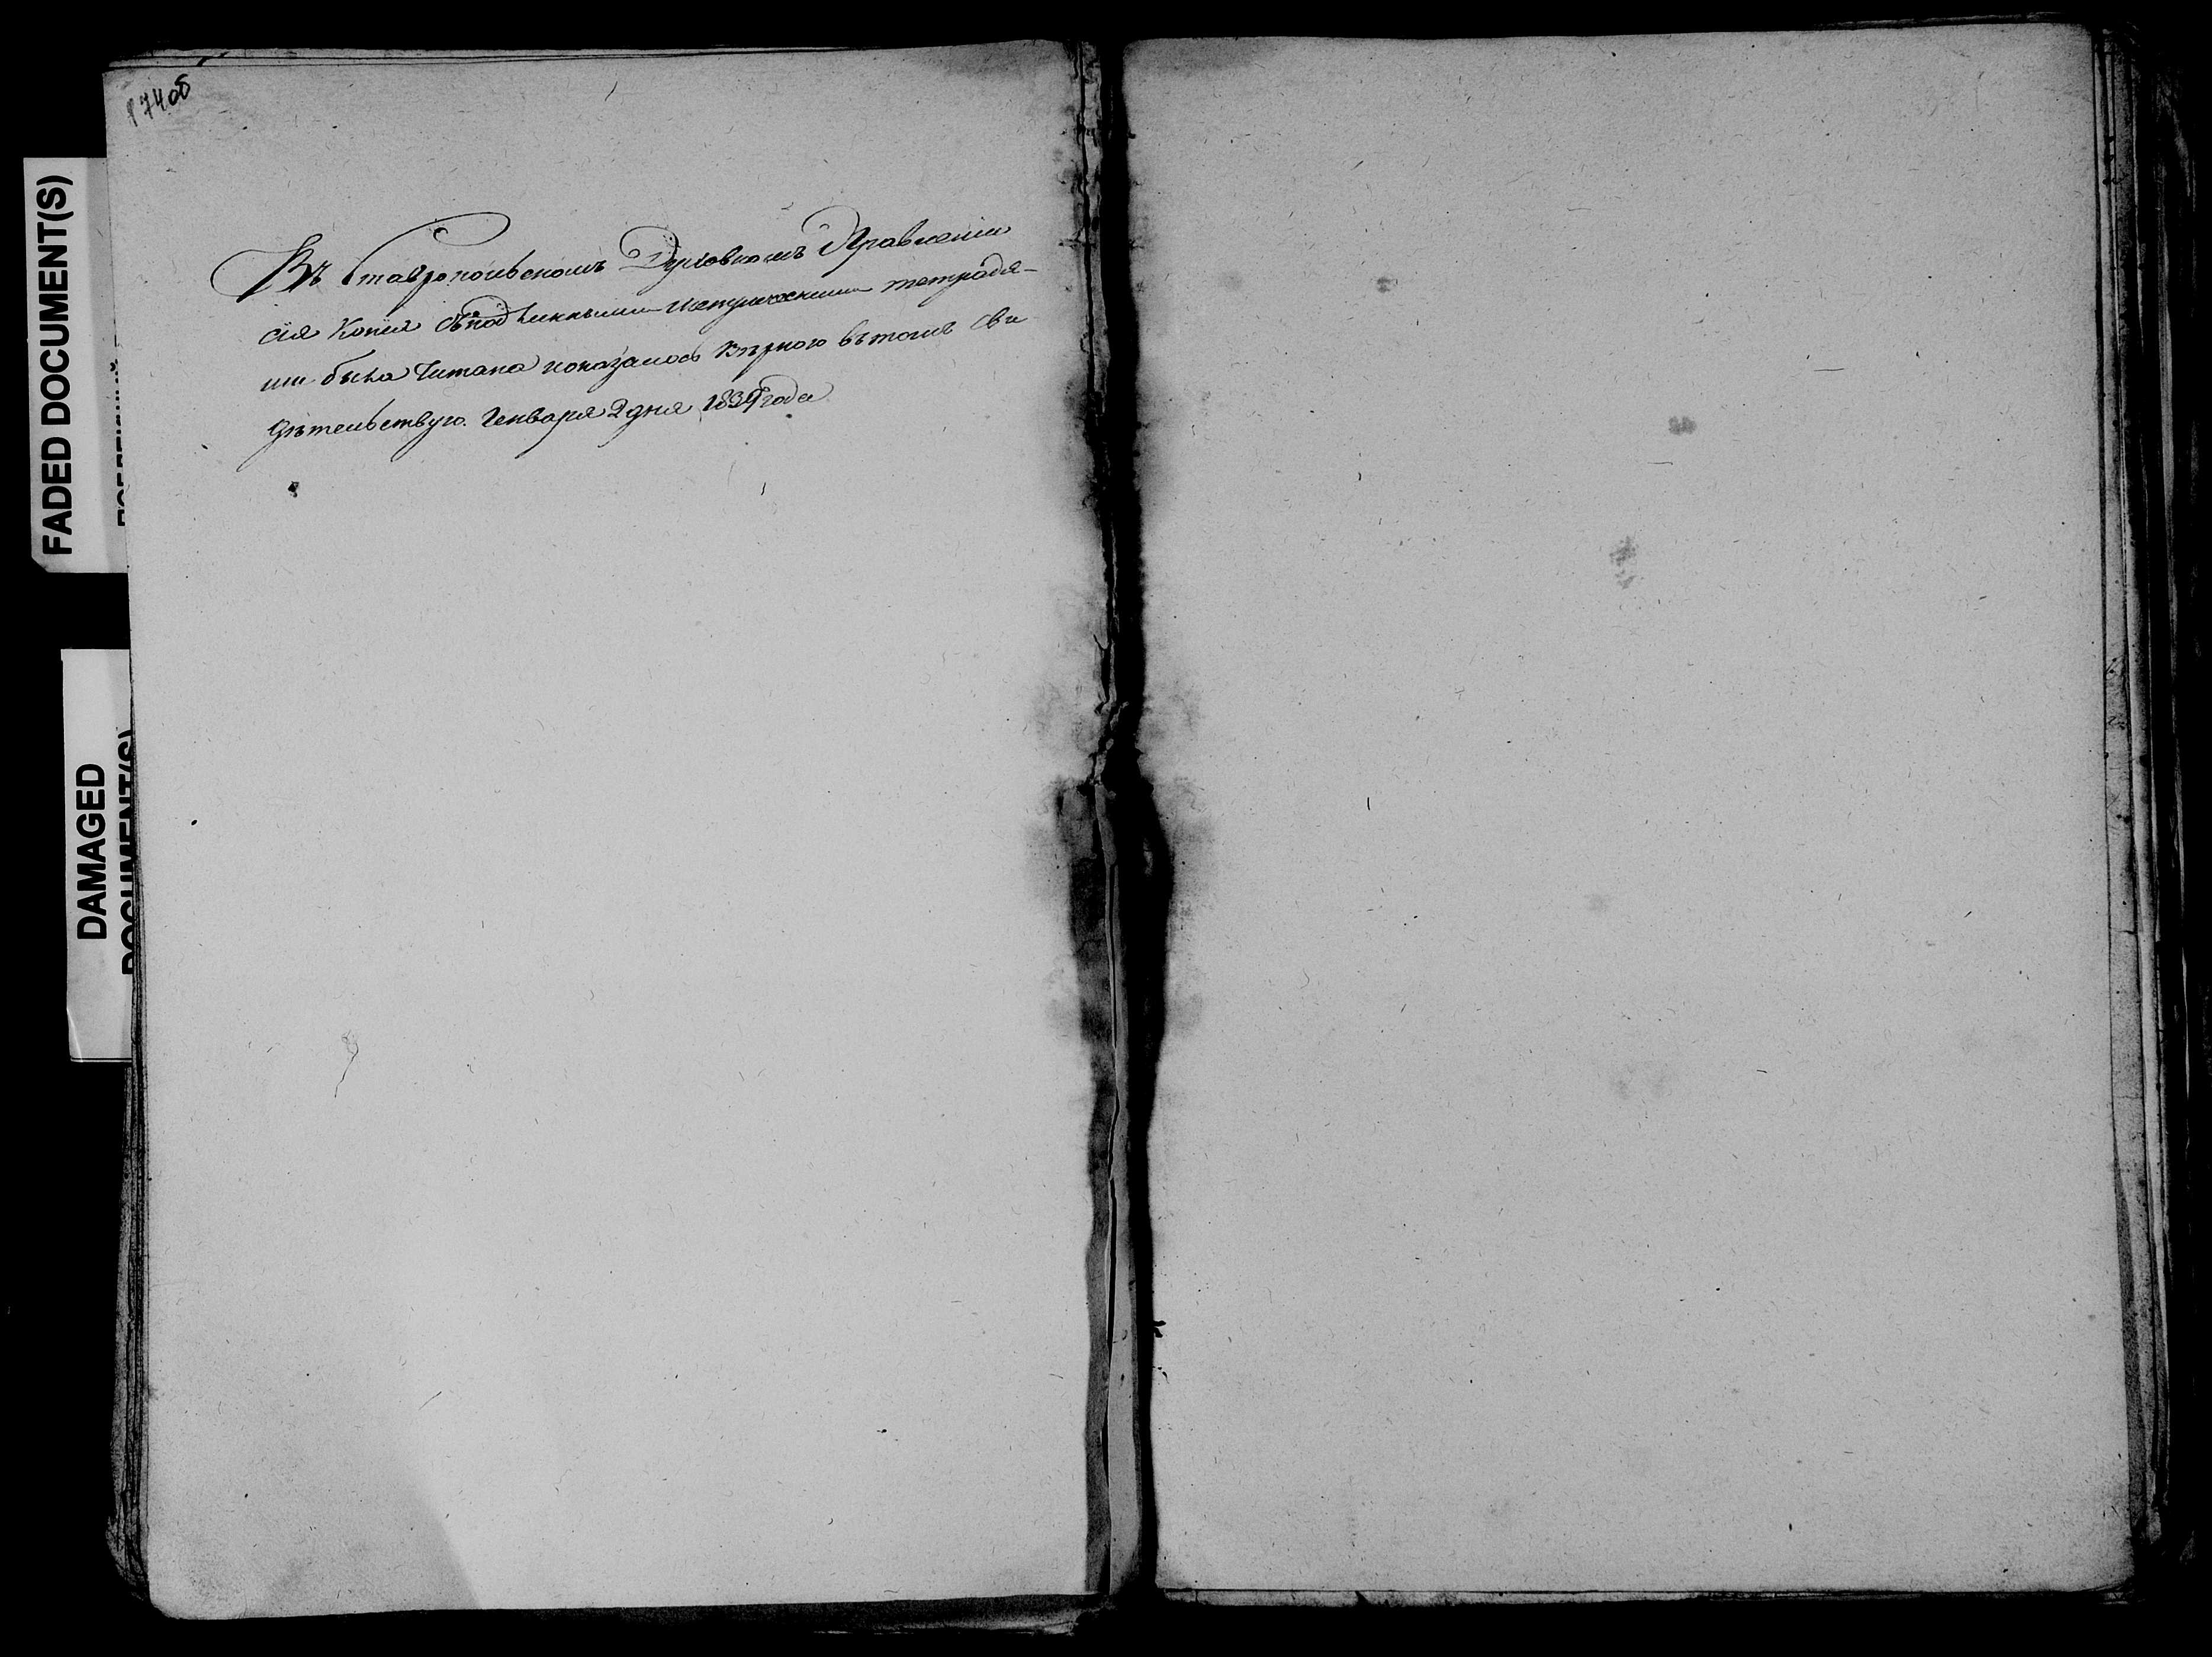 174об
FADED DOCUMENT(S)
DAMAGED
DOCUMENT(S)
Въ Ставропольскомъ Духовномъ Правленіи
сія Копія съ подлинными метрическими тетрадя-
ми была читана показалось вѣрною въ томъ сви-
дѣтельствую. Генваря 2 дня 1839 года